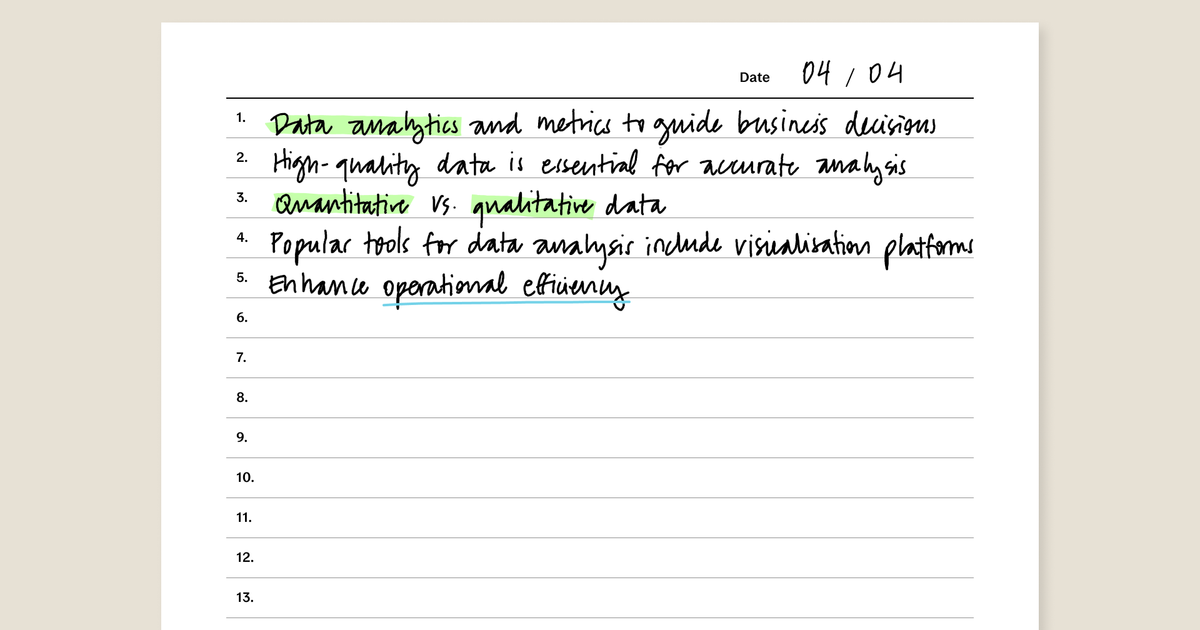 Date 04 / 04
1. Data analytics and metrics to guide business decisions
2. High-quality data is essential for accurate analysis
3. Quantitative vs. qualitative data
4. Popular tools for data analysis include visualisation platforms
5. Enhance operational efficiency
6.
7.
8.
9.
10.
11.
12.
13.